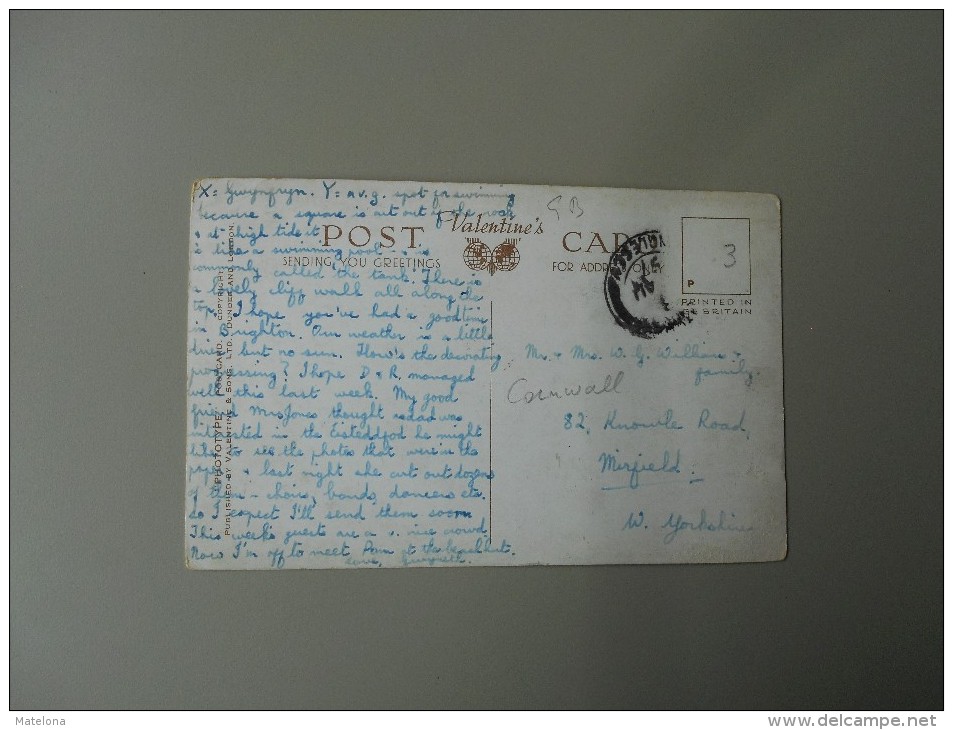 X = Gwynfryn. Y = a v. g. spot for swimming
because a square is cut out of the rock
& at high tide it
is like a swimming pool & is
commonly called 'the tank'. There is
a lovely cliff wall all along the
top. I hope you've had a good time
in Brighton. Our weather is a little
drier but no sun. How's the decorating
progressing? I hope D & R. managed
well this last week. My good
friend Mrs Jones thought as dad was
interested in the Eisteddfod he might
like to see the photos that were in the
paper & last night she cut out dozens
of them - choirs, bands, dancers etc.
so I expect I'll send them soon
This week's guests are a v. nice crowd.
Now I'm off to meet Pam at the beach hut.
Love,
Valentine's
POST CARD
SENDING YOU GREETINGS
FOR ADDRESS ONLY
PHOTOTYPE POSTCARD. COPYRIGHT.
PUBLISHED BY VALENTINE & SONS, LTD., DUNDEE AND LONDON.
GB
3
P
PRINTED IN
GT BRITAIN
Mr. & Mrs. W. G. William &
family.
Cornwall
82, Knowle Road,
Mirfield
W. Yorkshire
Matelona
www.delcampe.net